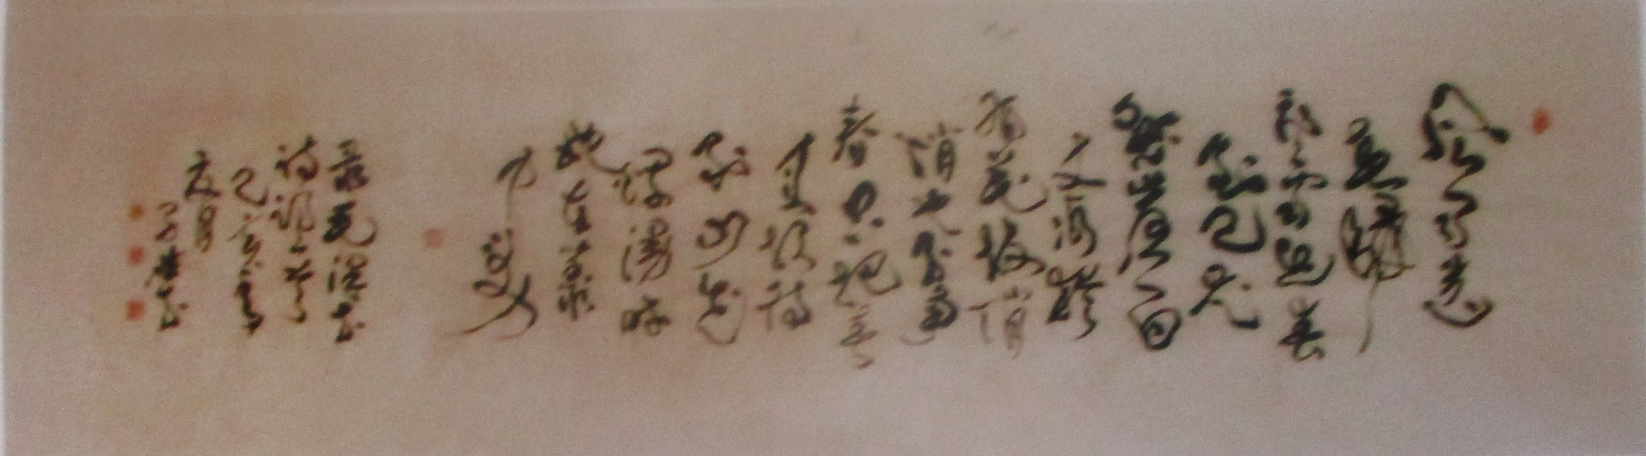 风雨送
春归
飞雪迎春
到已是
悬崖百
丈冰犹
有花枝俏
俏也不争
春只把春
来报待
到山花
烂漫时
她在丛中
笑
录毛泽东
诗词